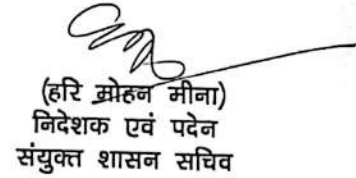 (हरि मोहन मीना)
निदेशक एवं पदेन
संयुक्त शासन सचिव